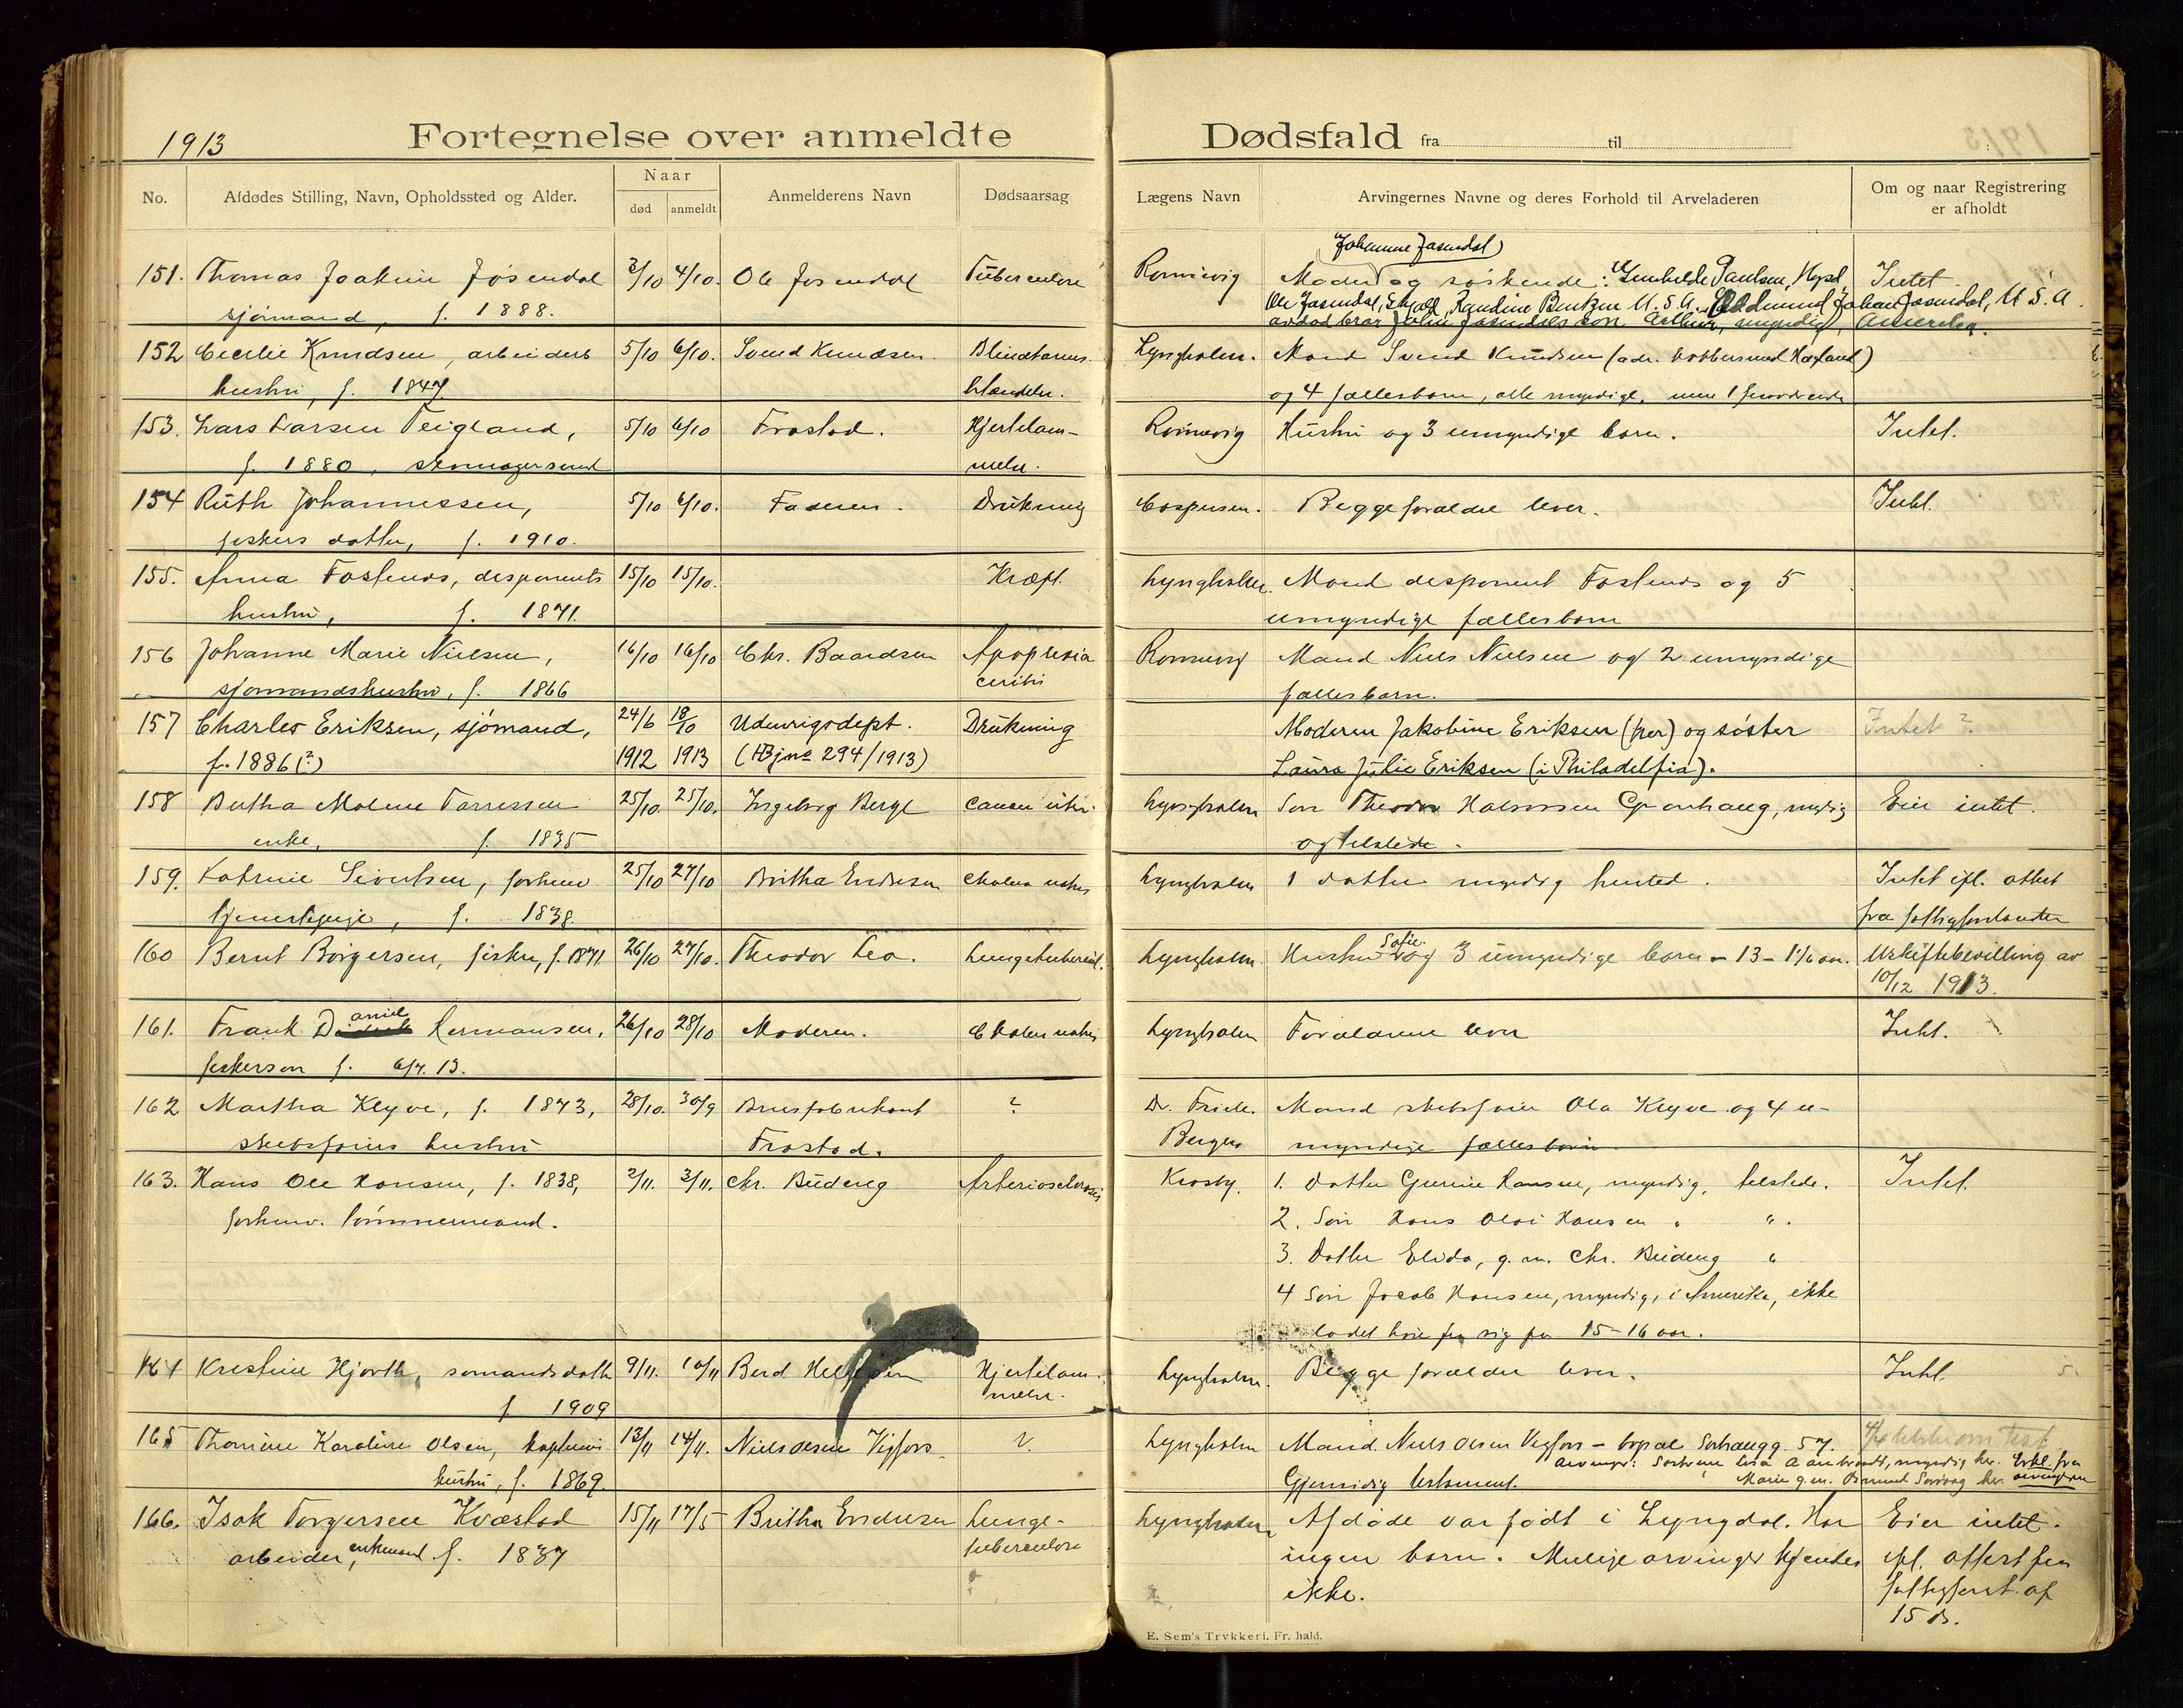 1913 Fortegnelse over anmeldte Dødsfald fra til
No. Afdødes Stilling, Navn, Opholdssted og Alder. Naar død anmeldt Anmelderens Navn Dødsaarsag Lægens Navn Arvingernes Navne og deres Forhold til Arveladeren Om og naar Registrering er afholdt
Johanne Jasendal
151. Thomas Joakim Jøsendal 3/10 4/10. Ole Jøsendal Tuberculose Rønnevig Moder og søskende: Paulsen, Intet
sjømand, f. 1888. Ole Jasendal, Randine Bentzen U.S.A. Edmund Johan Jasendal, U.S.A.
myndig, Amerika.
152 Cecilie Knudsen, arbeiders 5/10 6/10. Svend Knudsen. Blindtarms- Lyngholm. Mand Svend Knudsen
hustru, f. 1847. og 4 fællesbørn, alle myndige,
153. Lars Larsen Teigland, 5/10 6/10 Frøstad. Hjertelam- Rønnevig Hustru og 3 umyndige børn. Intet.
f. 1880, skomagersvend melse.
154 Ruth Johannessen, 5/10 6/10. Faderen. Drukning Caspersen. Begge forældre lever. Intet.
fiskers datter, f. 1910.
155. Anna Fostenes, disponents 15/10 15/10. Kræft. Lyngholm. Mand disponent Fostenes og 5
hustru, f. 1871. umyndige fællesbørn
156 Johanne Marie Nielsen, 16/10 16/10 Chr. Baardsen Apoplexia Rønnevig Mand Niels Nielsen og 2 umyndige
sjømandshustru, f. 1866 cerebri fællesbørn.
157 Charles Eriksen, sjømand, 24/6 18/10 Udenrigsdept. Drukning Moderen Jakobine Eriksen (her) og søster Intet?
f. 1886(?) 1912 1913 (HB jno 294/1913) Laura Julie Eriksen (i Philadelfia).
158 Bertha Malene Tarressen 25/10. 25/10. Ingeborg Berge cancer uteri. Lyngholm Søn Theodor Halvorsen Grønhaug, myndig Eier intet.
enke, f. 1835 og tilstede.
159. Katrine Sivertsen, forhenv 25/10 27/10 Britha Endresen cholera nostras Lyngholm 1 datter myndig her sted. Intet ifl. attest
tjenestepige, f. 1838. fra fattigforstander
160 Bernt Børgersen, fisker, f. 1871. 26/10 27/10. Theodor Lea. Lungetubercul. Lyngholm Hustru Sofie og 3 umyndige børn - 13 - 1 1/2 aar. Uskiftebevilling av
10/12 1913.
161. Frank Daniel Hermansen, 26/10 28/10 Moderen. Cholera nostras Lyngholm Forældrene lever Intet.
fiskersøn f. 6/7. 13.
162 Martha Klyve, f. 1843, 28/10. 30/9 Brusfabrikant ? Dr. Friele. Mand skibsfører Ola Klyve og 4 u-
skibsførers hustru Frøstad. Bergen myndige fællesbørn
163. Hans Ole Hansen, f. 1838, 2/11. 3/11. Chr. Büdeng Arteriosclerosis Krosby. 1. Datter Gurine Hansen, myndig, tilstede. Intet.
forhenv. tømmermand. 2. Søn Hans Olai Hansen " ".
3. Datter Elida, g. m. Chr. Büdeng "
4 Søn Jacob Hansen, myndig, i Amerika, ikke
ladet høre fra sig paa 15-16 aar.
164 Kristine Hjorth, sømands datter 9/11. 10/11 Berd Helgesen Hjertelam- Lyngholm. Begge forældre lever. Intet.
f. 1909 melse.
165 Thomine Karoline Olsen, 13/11 14/11. Niels Olsen Vigfors ?. Lyngholm Mand Niels Olsen Vigfors - bopæl Sørhaugg. 57.
hustru, f. 1869. Arvinger: myndig her. Erkl. fra
Gjensidig testament. Marie g.m. her arvingerne
166. Isak Torgersen Kvæstad 15/11 17/5 Britha Endresen Lunge- Lyngholm Afdøde var født i Lyngdal. Har Eier intet.
arbeider, enkemand f. 1837 tuberculose ingen børn. Mulige arvinger kjendes ifl. attest fra
ikke. fattigforst. af
15 ds.
E. Sem's Trykkeri. Fr. hald.